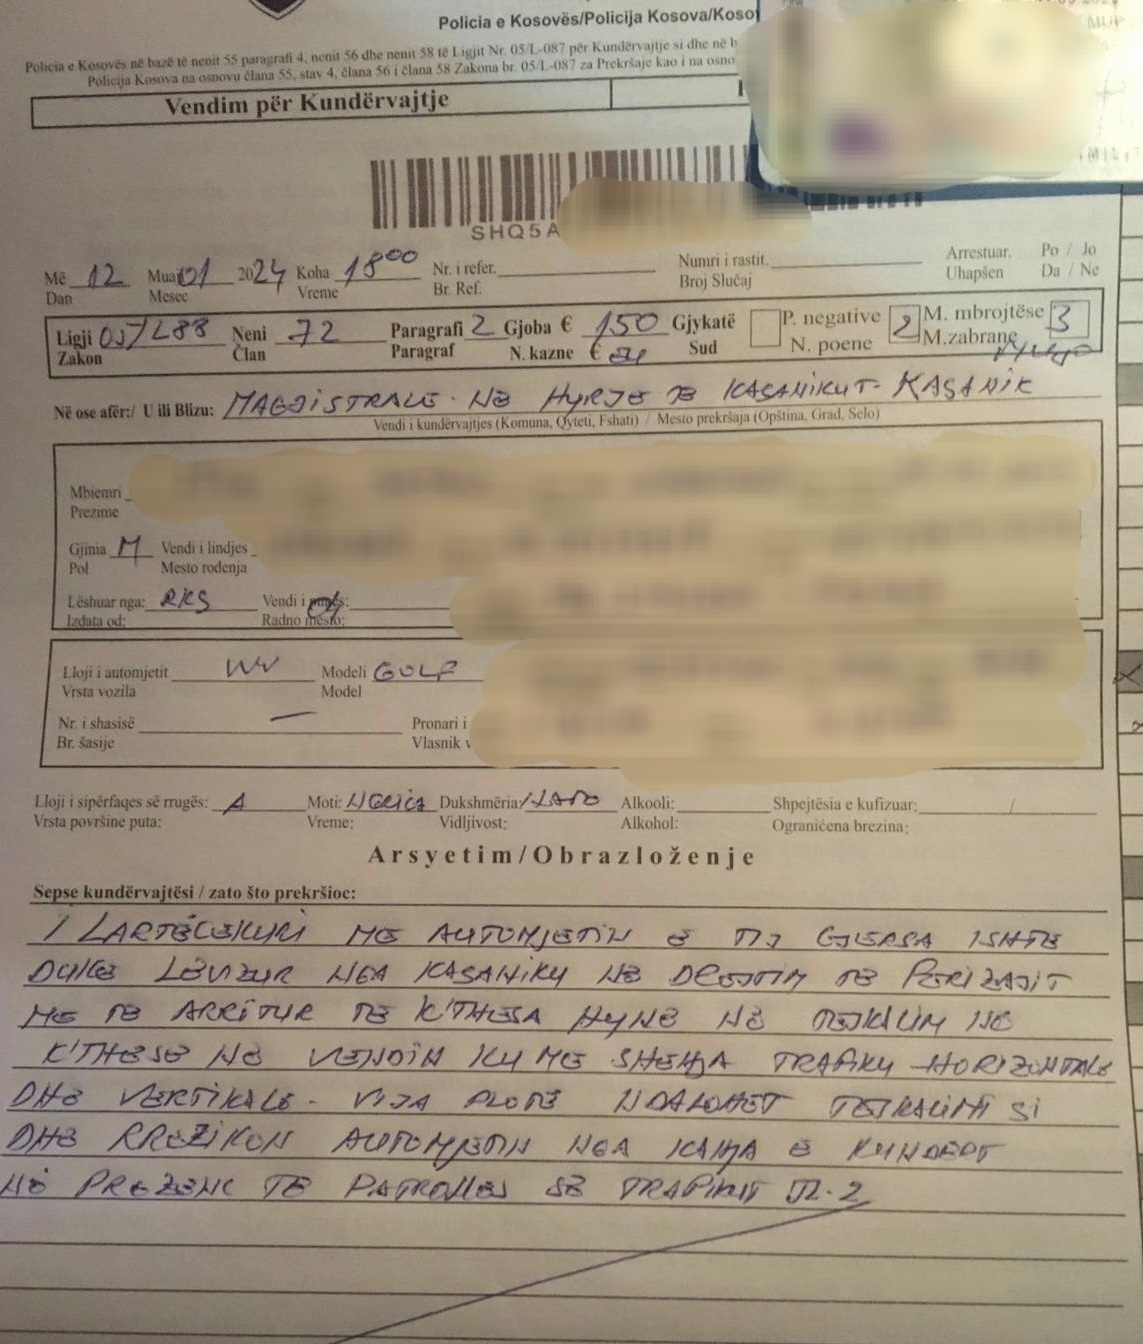 Policia e Kosovës/Policija Kosova/Koso
Policia e Kosovës në bazë të nenit 55 paragrafi 4, nenit 56 dhe nenit 58 të Ligjit Nr. 05/L-087 për Kundërvajtje si dhe në b
Policija Kosova na osnovu člana 55, stav 4, člana 56 i člana 58 Zakona br. 05/L-087 za Prekršaje kao i na osno
MUP
Vendim për Kundërvajtje
SHQ5A
Më 12 Muaj 01 2024 Koha 18 00 Nr. i refer. Numri i rastit. Arrestuar. Po / Jo
Dan Mesec Vreme Br. Ref. Broj Slučaj Uhapšen Da / Ne
Ligji 05/L88 Neni 72 Paragrafi 2 Gjoba € 150 Gjykatë P. negative 2 M. mbrojtëse 3
Zakon Član Paragraf N. kazne € Sud N. poene M.zabrane
Në ose afër:/ U ili Blizu: MAGJISTRALE - NË HYRJE TË KAÇANIKUT - KAÇANIK
Vendi i kundërvajtjes (Komuna, Qyteti, Fshati) / Mesto prekršaja (Opština, Grad, Selo)
Mbiemri
Prezime
Gjinia M Vendi i lindjes
Pol Mesto rođenja
Lëshuar nga: RKS Vendi i punës:
Izdata od: Radno mesto:
Lloji i automjetit WV Modeli GOLF
Vrsta vozila Model
Nr. i shasisë — Pronari i
Br. šasije Vlasnik v
Lloji i sipërfaqes së rrugës: A Moti: Dukshmëria: Alkooli: Shpejtësia e kufizuar: /
Vrsta površine puta: Vreme: Vidljivost: Alkohol: Ograničena brezina:
Arsyetim/Obrazloženje
Sepse kundërvajtësi / zato što prekršioc:
I LARTËCEKURI ME AUTOMJETIN E TIJ GJERSA ISHTE
DUKE LËVIZUR NGA KAÇANIKU NË DREJTIM TË FERIZAJIT
ME TË ARRITUR TE KTHESA HYNË NË TEJKALIM NË
KTHESË NË VENDIN KU ME SHENJA TRAFIKU HORIZONTALE
DHE VERTIKALE - VIJA PLOTË NDALOHET TEJKALIMI SI
DHE RREZIKON AUTOMJETIN NGA KAHJA E KUNDERT
NË PREZENC TË PATROLLES SË TRAFIKUT